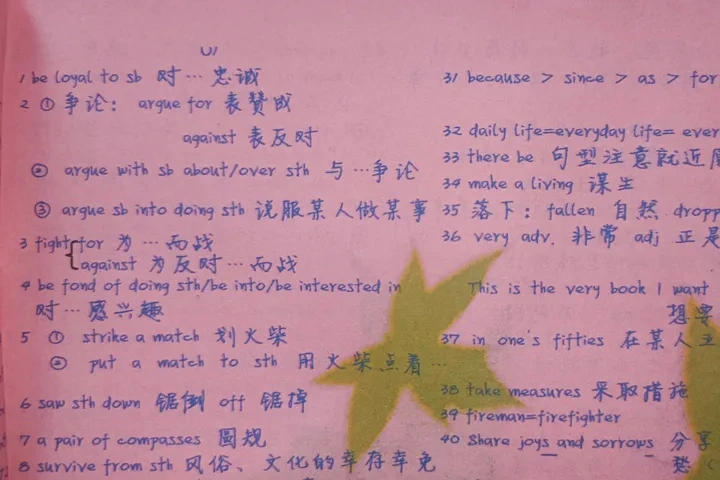 U1
1 be loyal to sb 对…忠诚
2 ① 争论： argue for 表赞成
against 表反对
② argue with sb about/over sth 与…争论
③ argue sb into doing sth 说服某人做某事
3 fight for 为…而战
against 为反对…而战
4 be fond of doing sth/be into/be interested in
对…感兴趣
5 ① strike a match 划火柴
② put a match to sth 用火柴点着…
6 saw sth down 锯倒 off 锯掉
7 a pair of compasses 圆规
8 survive from sth 风俗、文化的幸存幸免
31 because > since > as > for
32 daily life=everyday life=
33 there be 句型注意就近
34 make a living 谋生
35 落下： fallen 自然
36 very adv. 非常 adj 正是
This is the very book I want
想要
37 in one's fifties 在某人
38 take measures 采取措施
39 fireman=firefighter
40 Share joys and sorrows 分享
愁